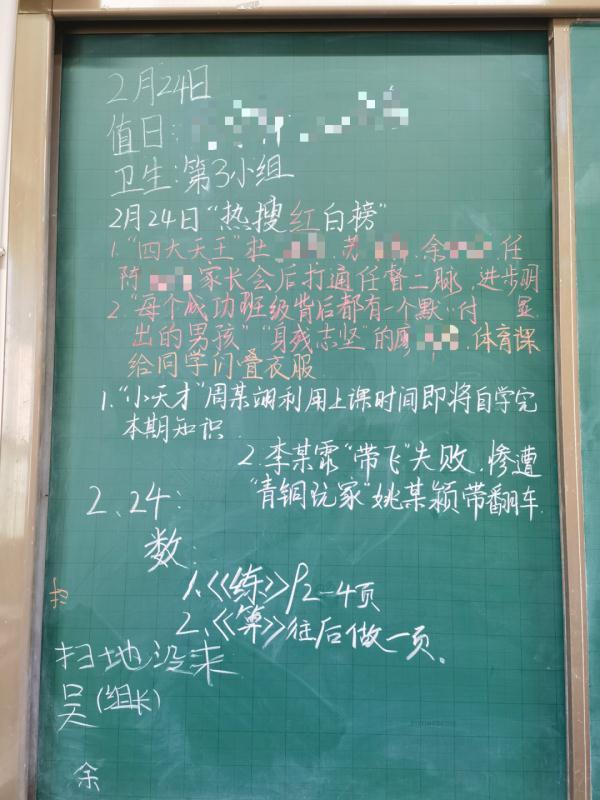 2月24日
值日:
卫生:第3小组
2月24日“热搜红白榜”
1.“四大天王”杜 、苏 、余 、任
陈 家长会后打通任督二脉,进步明
显
2.“每个成功班级背后都有一个默付
出的男孩”“身残志坚”的 ,体育课
给同学们叠衣服
1.“小天才”周某翊利用上课时间即将自学完
本期知识.
2.李某霏“带飞”失败,惨遭
“青铜玩家”姚某颖带翻车.
2、24:
数:
1、《练》P2-4页
2、《算》往后做一页。
扫
扫地没来
吴(组长)
余